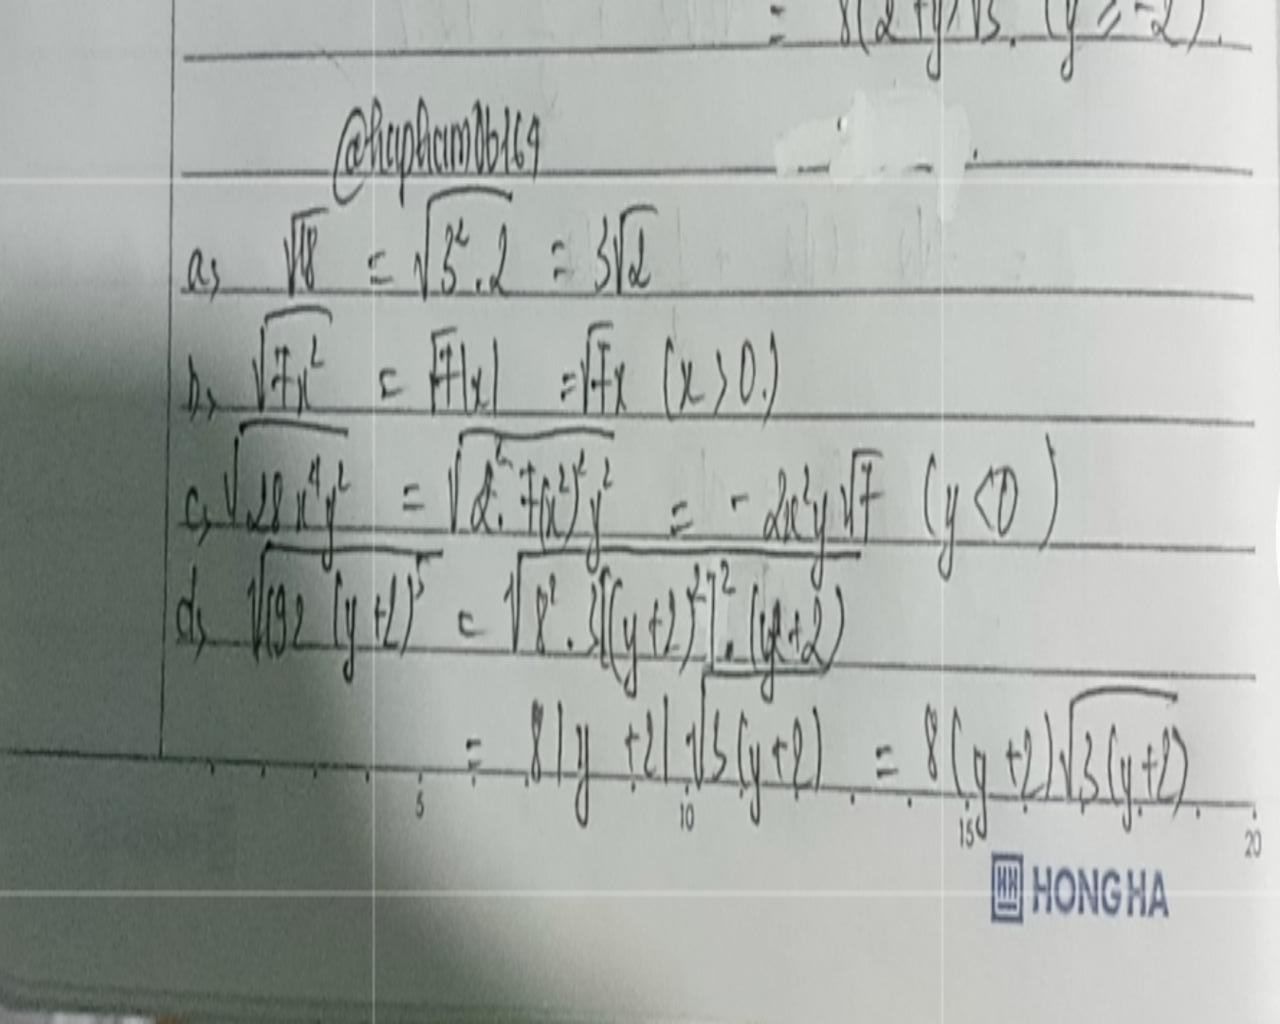 = 8(2+y)√3. (y ≥ -2).
@hapham06164
a, √18 = √3².2 = 3√2
b, √7x² = √7|x| = √7x (x>0.)
c, √28x⁴y² = √2².7(x²)²y² = -2x²y√7 (y<0)
d, √192(y+2)⁵ = √8².3[(y+2)²]².(y+2)
= 8|y+2|√3(y+2) = 8(y+2)√3(y+2)
5 10 15 20
HONG HA